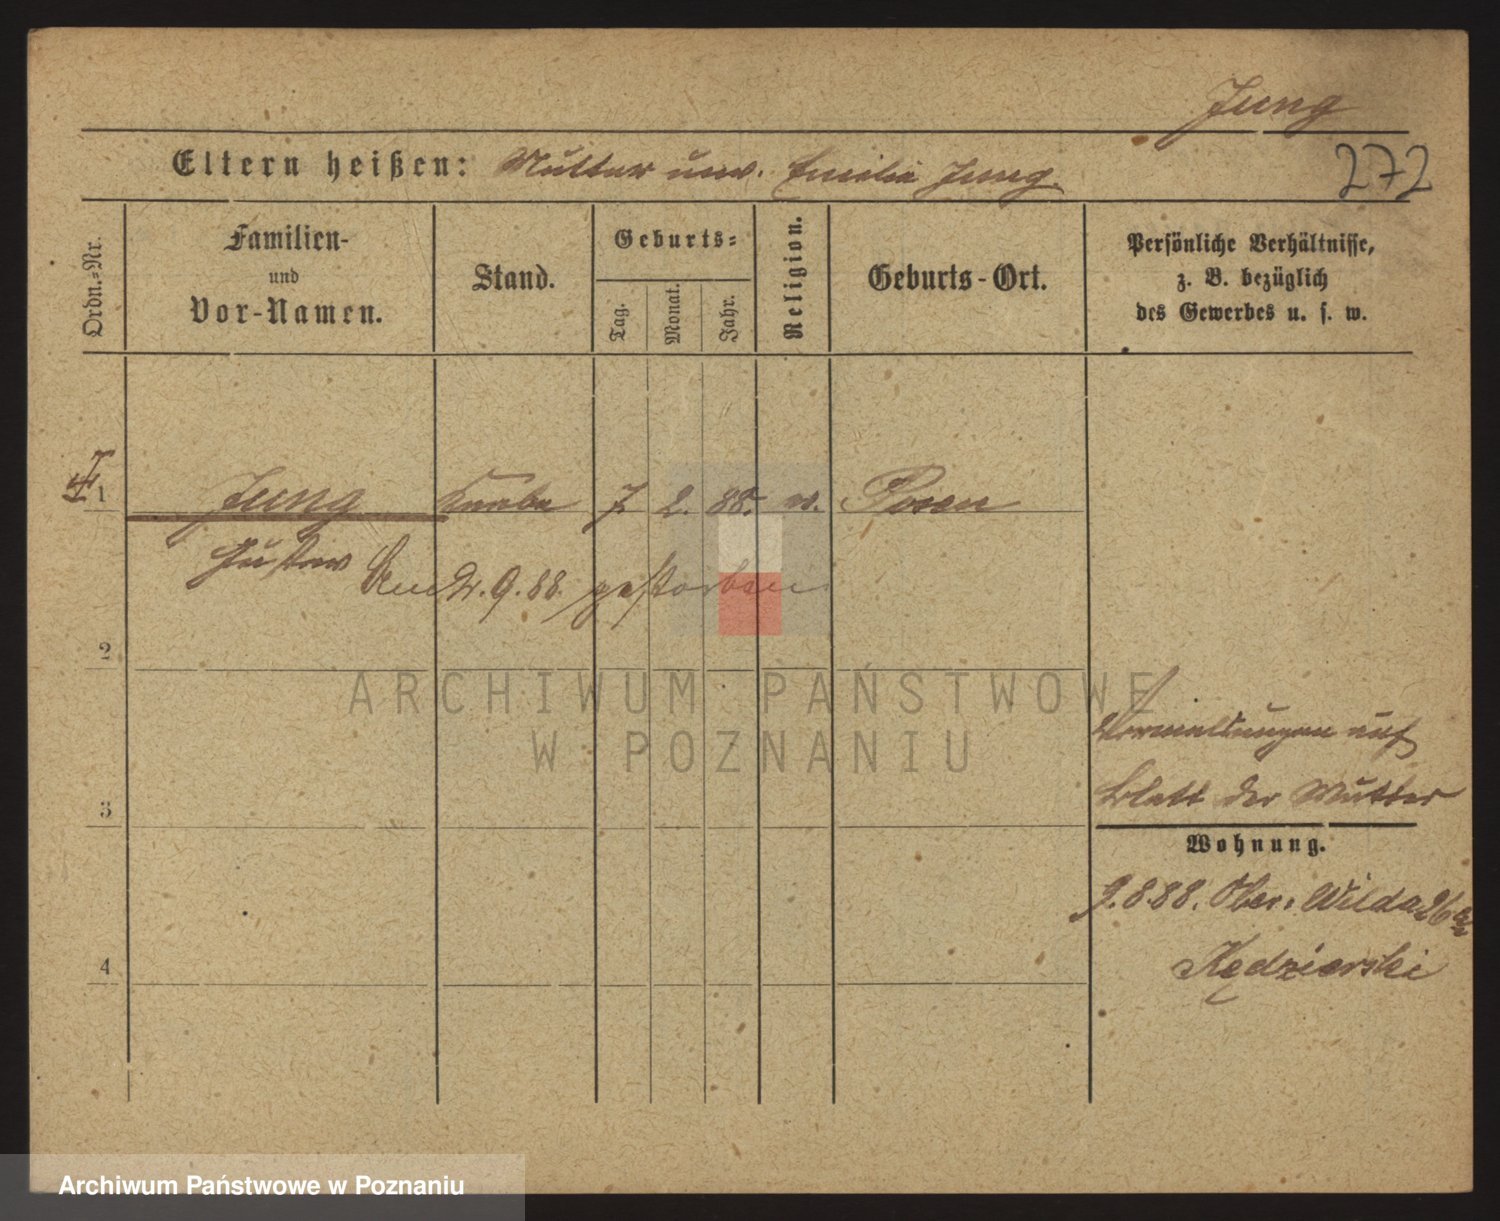 Jung
272
Eltern heißen: Mutter unv. Emilie Jung.
Ordn.-Nr.
Familien-
und
Vor-Namen.
Stand.
Geburts-
Tag.
Monat.
Jahr.
Religion.
Geburts-Ort.
Persönliche Verhältnisse,
z. B. bezüglich
des Gewerbes u. s. w.
1 Jung Knabe 7. 2. 88. Posen
Gustav
Am 2. 9. 88. gestorben
2
3
4
ARCHIWUM PAŃSTWOWE
W POZNANIU
Vermeldungen auf
Blatt der Mutter
Wohnung.
9.8.88. Ober: Wilda 26
Kędzierski
Archiwum Państwowe w Poznaniu